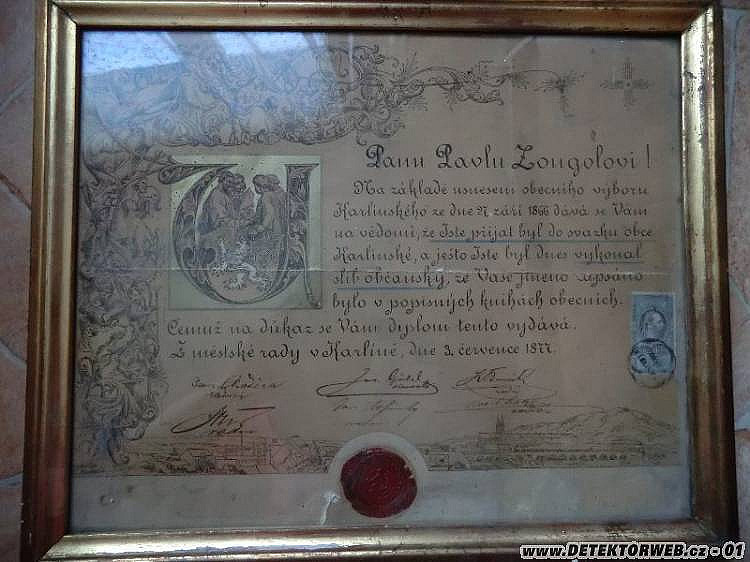 Panu Pavlu Zongolovi!
Na základě usnesení obecního výboru
Karlínského ze dne 27 září 1866 dává se Vám
na vědomí, že Jste přijat byl do svazku obce
Karlínské, a ješto Jste byl dnes vykonal
slib občanský, že Vaše jméno zapsáno
bylo v popisných knihách obecních.
Čemuž na důkaz se Vám diplom tento vydává.
Z městské rady v Karlíně, dne 3. července 1877.
www.DETEKTORWEB.cz - 01